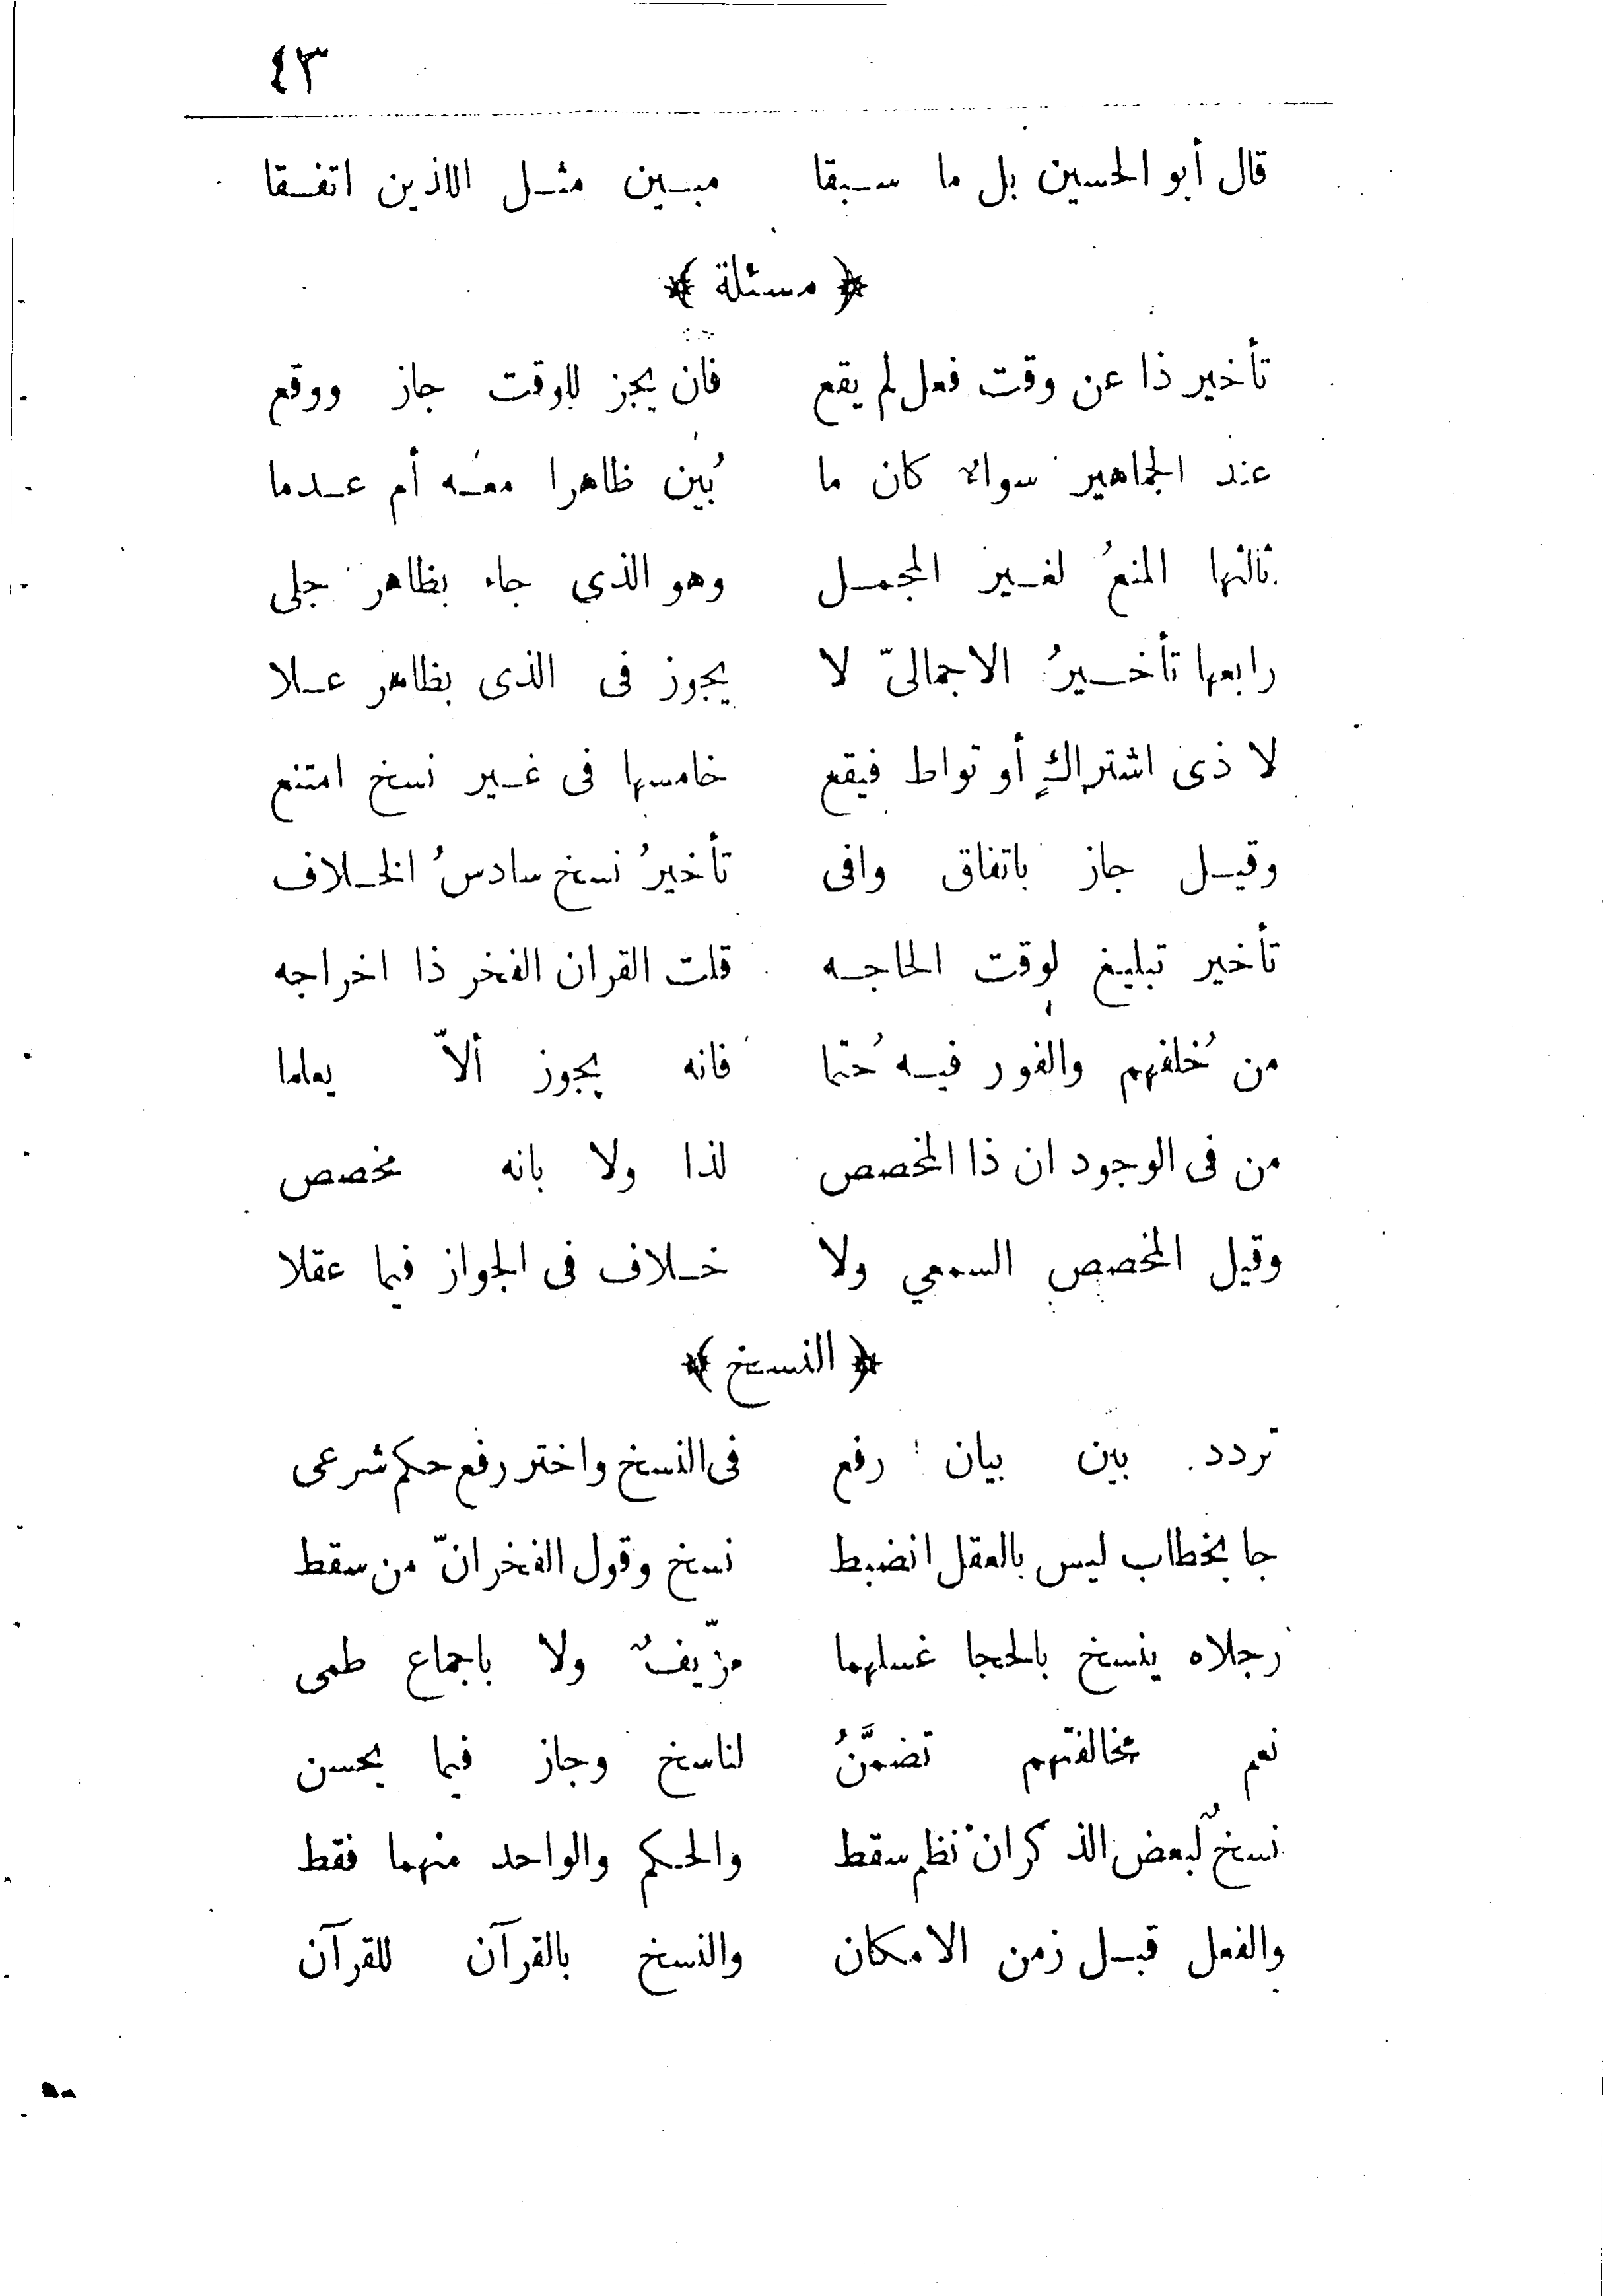 ٤٣
قال أبو الحسين بل ما سبقا مبين مثل اللذين اتفقا
﴿ مسئلة ﴾
تأخير ذا عن وقت فعل لم يقع فان يجز للوقت جاز ووقع
عند الجماهير سواء كان ما بُين ظاهرا معه أم عدما
ثالثها المنعُ لغير المجمل وهو الذى جاء بظاهر جلى
رابعها تأخيرُ الاجمالىّ لا يجوز فى الذى بظاهر علا
لا ذى اشتراكٍ أو تواط فيقع خامسها فى غير نسخ امتنع
وقيل جاز باتفاق وافى تأخيرُ نسخ سادسُ الخلاف
تأخير تبليغ لوقت الحاجه قلت القران الفخر ذا اخراجه
من خُلفهم والفور فيه حُتما فانه يجوز ألاّ يعلما
من فى الوجود ان ذا المخصص لذا ولا بانه مخصص
وقيل المخصص السمعي ولا خلاف فى الجواز فيما عقلا
﴿ النسخ ﴾
تردد بين بيان رفع فى النسخ واختر رفع حكم شرعى
جا بخطاب ليس بالعقل انضبط نسخ وقول الفخر انّ من سقط
رجلاه ينسخ بالحجا غسلهما مزّيفٌ ولا باجماع طمى
نعم مخالفتهم تضمَّنُ لناسخ وجاز فيما يحسن
نسخٌ لبعض الذكر انْ نظم سقط والحكم والواحد منهما فقط
والفعل قبل زمن الامكان والنسخ بالقرآن للقرآن